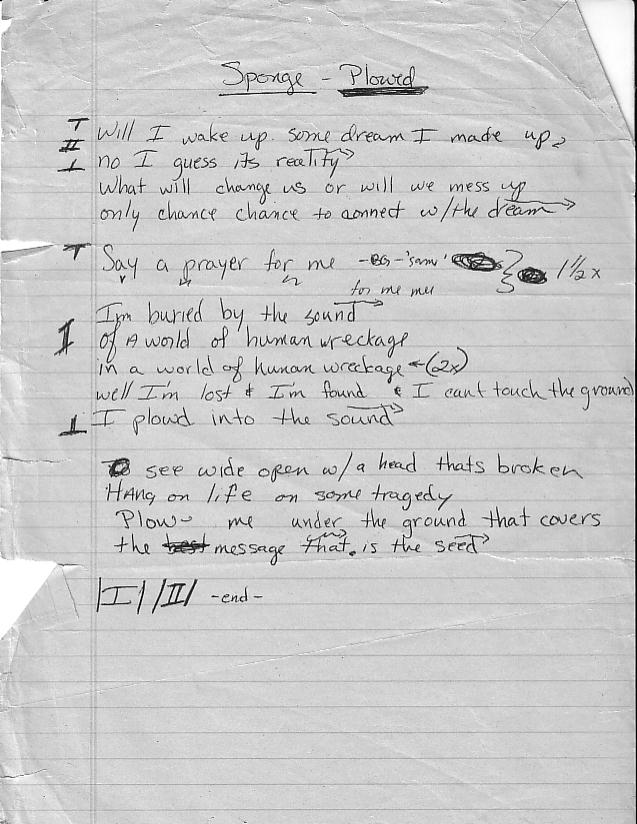 Sponge - Plowed
II Will I wake up. Some dream I made up,
no I guess its reality
What will change us or will we mess up
only chance chance to connect w/the dream
Say a prayer for me -BG- 'same' 1 1/2 x
for me me
I Im buried by the sound
of A world of human wreckage
in a world of human wreckage ← (2x)
well I'm lost & I'm found & I cant touch the ground
I plowd into the sound
see wide open w/a head thats broken
HANg on life on some tragedy
Plow me under the ground that covers
the message that. is the seed
|I| |II| -end-